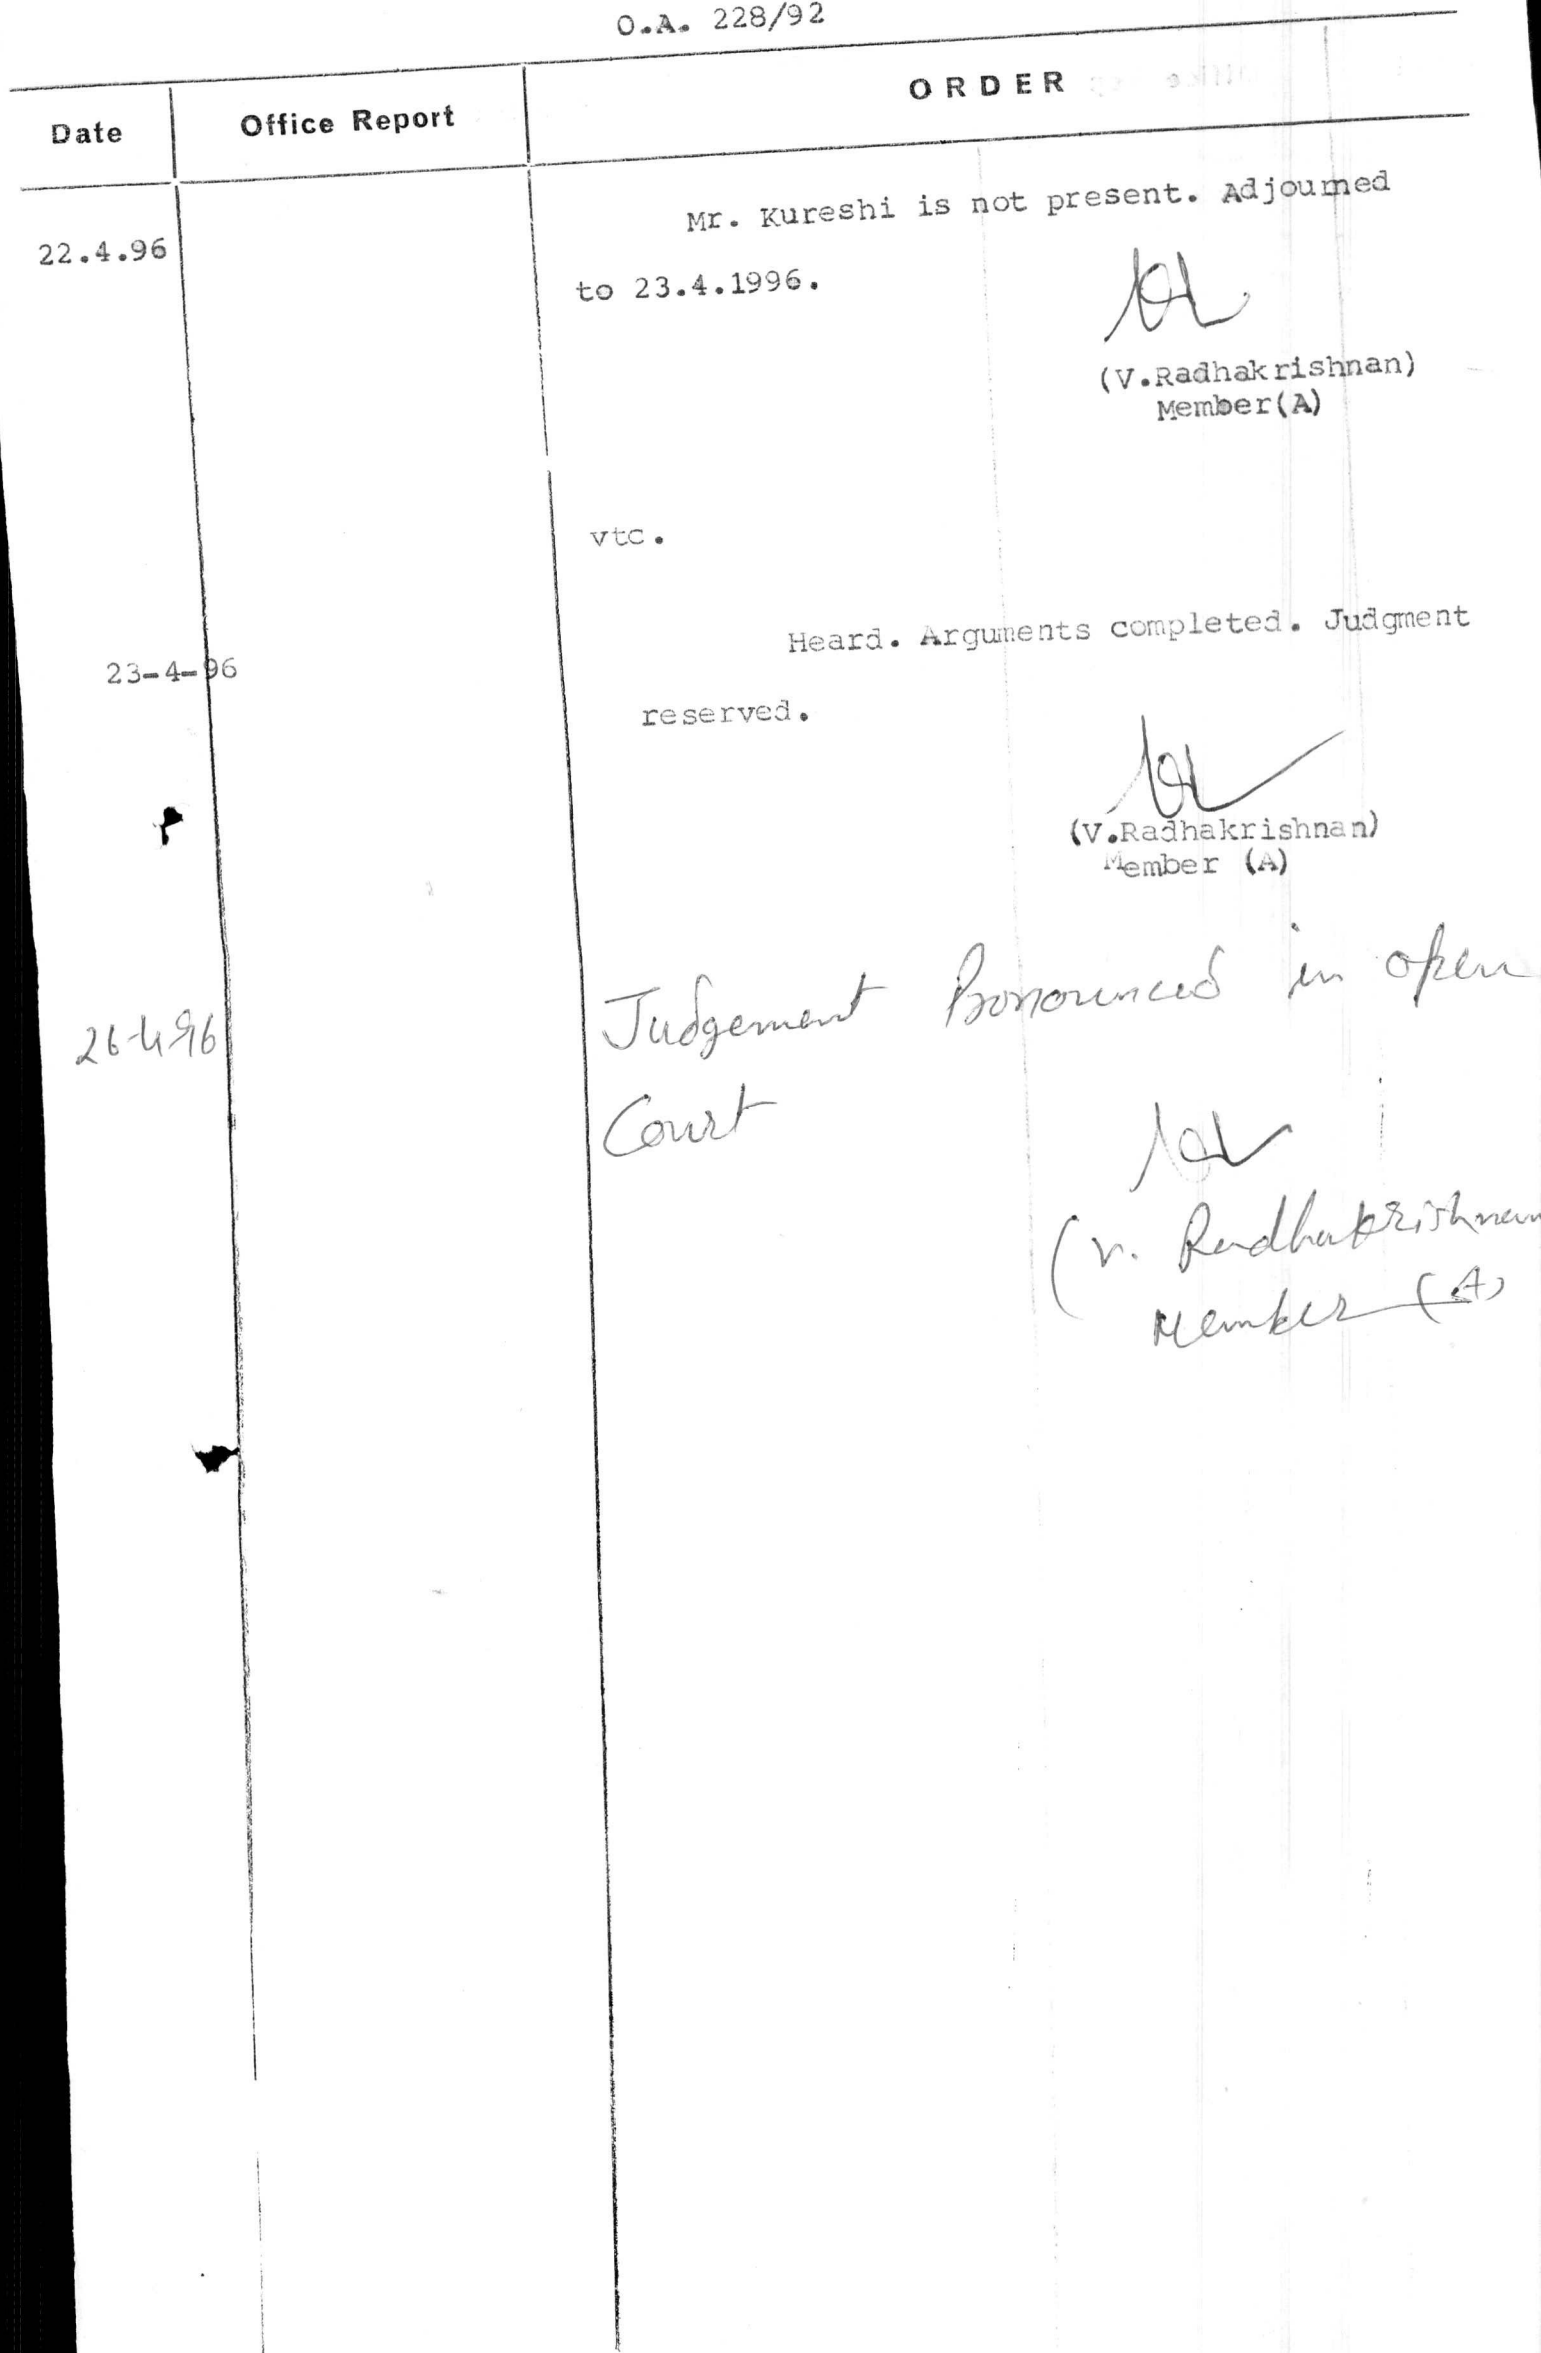 O.A. 228/92
Date Office Report ORDER
22.4.96 Mr. Kureshi is not present. Adjourned
to 23.4.1996.
(V.Radhakrishnan)
Member(A)
vtc.
23-4-96 Heard. Arguments completed. Judgment
reserved.
(V.Radhakrishnan)
Member (A)
26-4-96 Judgement Pronounced in open
Court
(V. Radhakrishnan
Member (A)